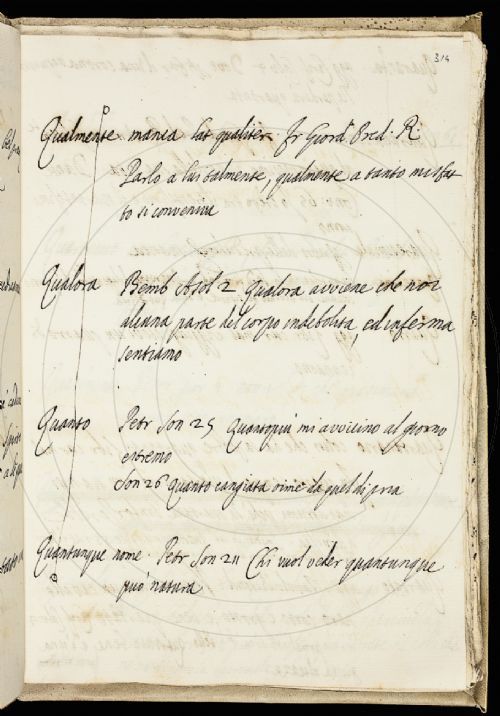 314
Qualmente manca lat qualiter Fr Giord. Pred. R.
Parlo a lui talmente, qualmente a tanto misfat
to si conveniva
Qualora Bemb Asol 2 Qualora avviene che noi
alcuna parte del corpo indebolita, ed inferma
sentiamo
Quanto Petr Son 25 Quanto più mi avvicino al giorno
estremo
Son 26 Quanto cangiata oimè da quel di pria
Quantunque nome Petr Son 211 Chi vuol veder quantunque
può natura